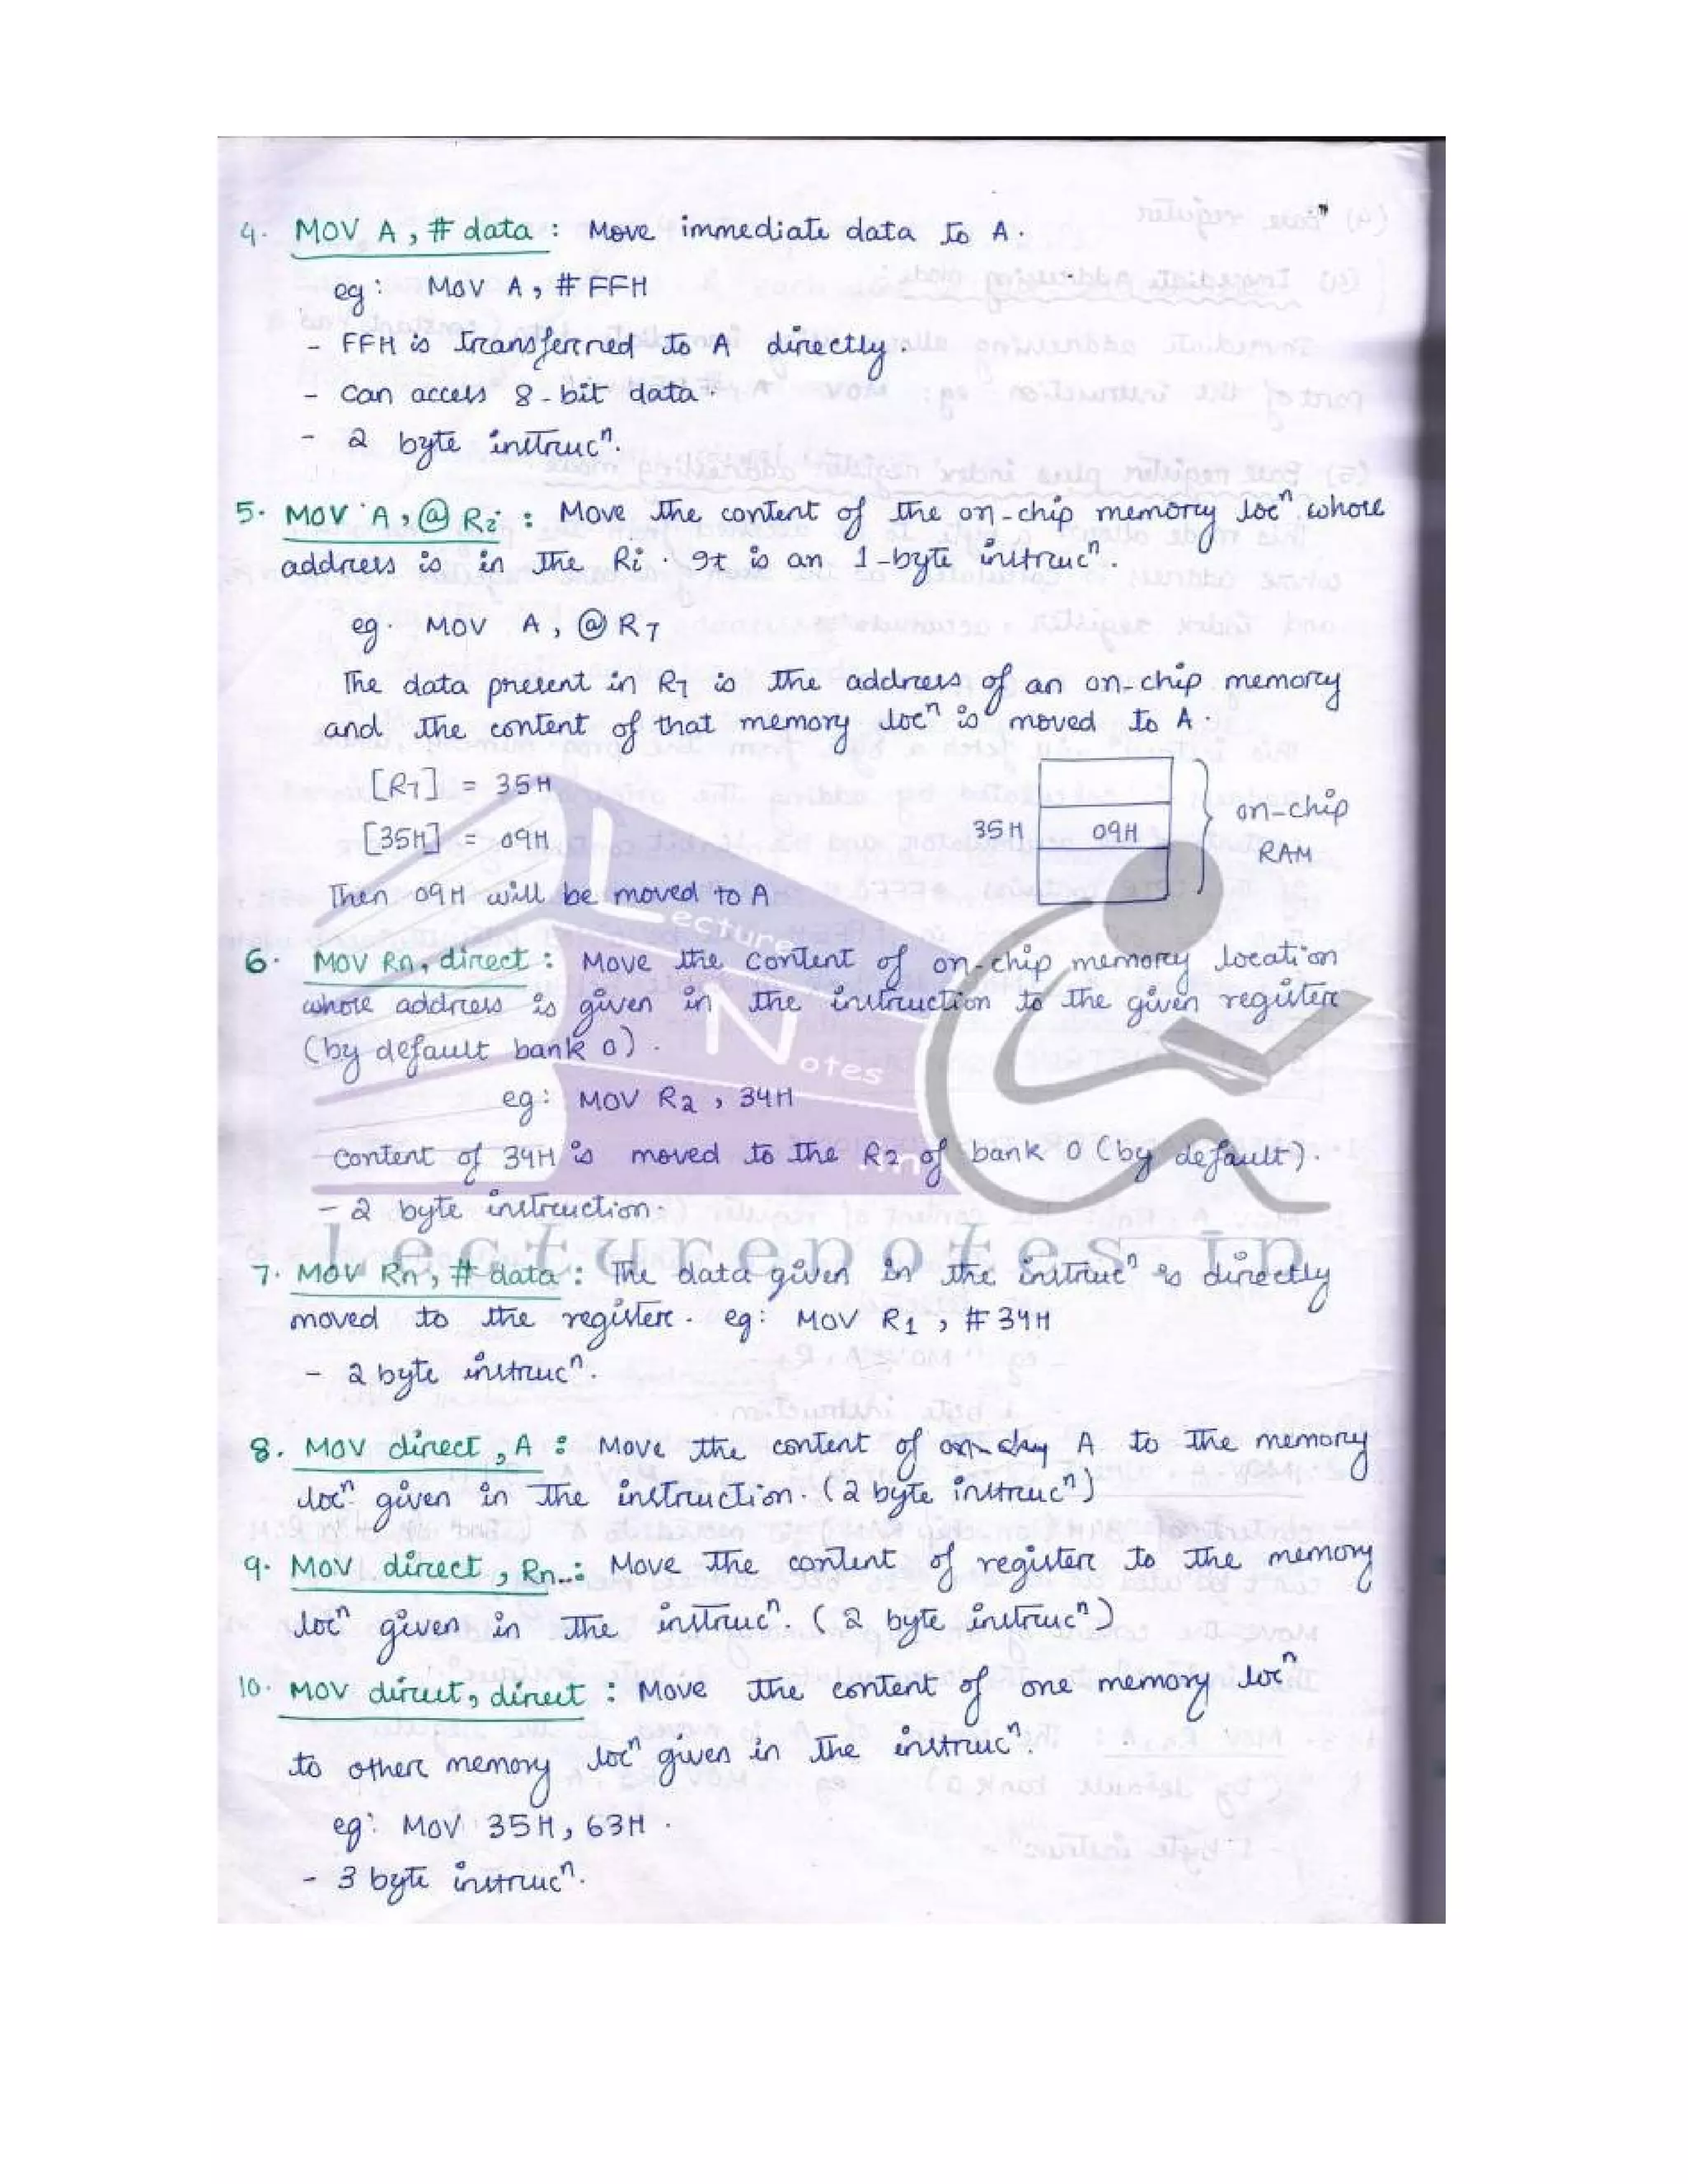 4. MOV A, # data : Move immediate data to A.
eg: MOV A, #FFH
- FFH is transferred to A directly.
- Can access 8-bit data.
- 2 byte instrucⁿ.
5. MOV A, @ Ri : Move the content of the on-chip memory locⁿ whose
address is in the Ri. It is an 1-byte instrucⁿ.
eg. MOV A, @ R7
The data present in R7 is the address of an on-chip memory
and the content of that memory locⁿ is moved to A.
[R7] = 35H
[35H] = 09H
35H 09H on-chip
RAM
Then 09H will be moved to A
Lecture
6. MOV Rn, direct : Move the content of on-chip memory location
whose address is given in the instruction to the given register
(by default bank 0).
Notes
eg: MOV R2, 34H
Content of 34H is moved to the R2 of bank 0 (by default).
.in
- 2 byte instruction.
lecturenotes.in
7. MOV Rn, # data : The data given in the instrucⁿ is directly
moved to the register. eg: MOV R1, #34H
- 2 byte instrucⁿ.
8. MOV direct, A : Move the content of A to the memory
locⁿ given in the instruction. (2 byte instrucⁿ)
9. MOV direct, Rn : Move the content of register to the memory
locⁿ given in the instrucⁿ. (2 byte instrucⁿ)
10. MOV direct, direct : Move the content of one memory locⁿ
to other memory locⁿ given in the instrucⁿ.
eg: MOV 35H, 63H.
- 3 byte instrucⁿ.